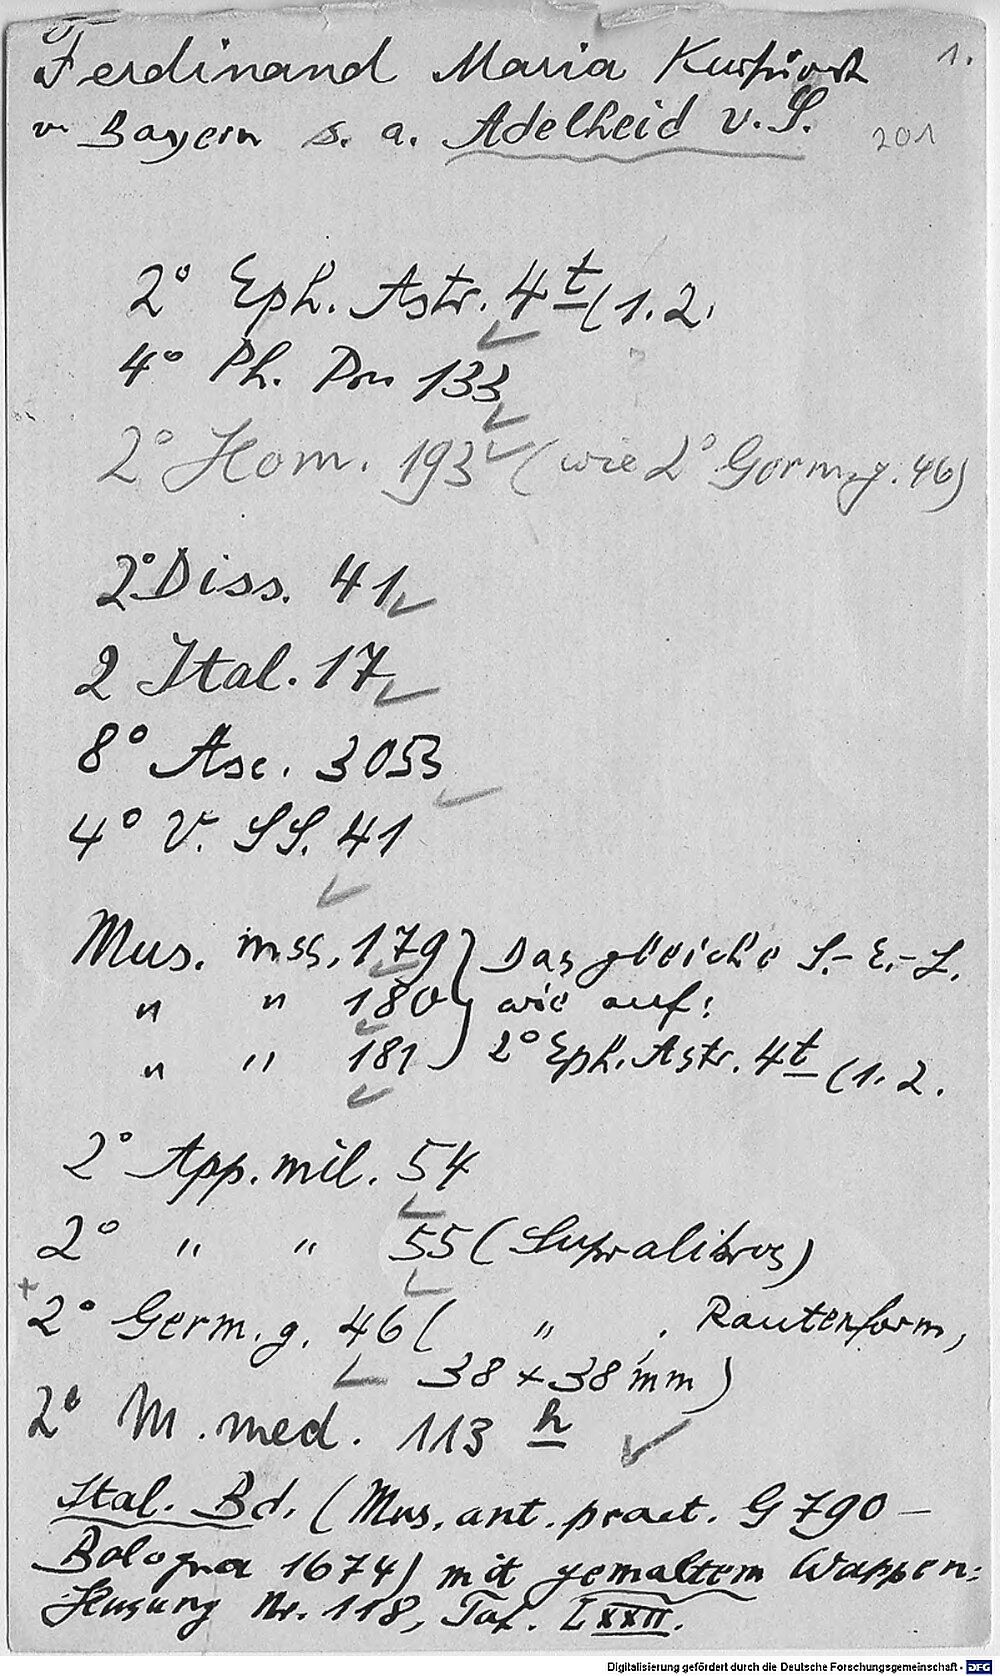 Ferdinand Maria Kurfürst 1.
v. Bayern s. a. Adelheid v. S. 201
2° Eph. Astr. 4 t (1. 2.
4° Ph. Pr. 133
2° Hom. 193 (wie 2° Germ. g. 46)
2° Diss. 41
2 Ital. 17
8° Asc. 3053
4° V. SS. 41
Mus. mss. 179 } Das gleiche S.-E.-L.
" " 180 } wie auf:
" " 181 } 2° Eph. Astr. 4 t (1. 2.
2° App. mil. 54
2° " " 55 (Supralibros)
+
2° Germ. g. 46 ( " , Rautenform,
38 x 38 mm)
2° M. med. 113 h
Ital. Bd. (Mus. ant. pract. G 790 –
Bologna 1674) mit gemaltem Wappen:
Husung Nr. 118, Taf. LXXII.
Digitalisierung gefördert durch die Deutsche Forschungsgemeinschaft - DFG